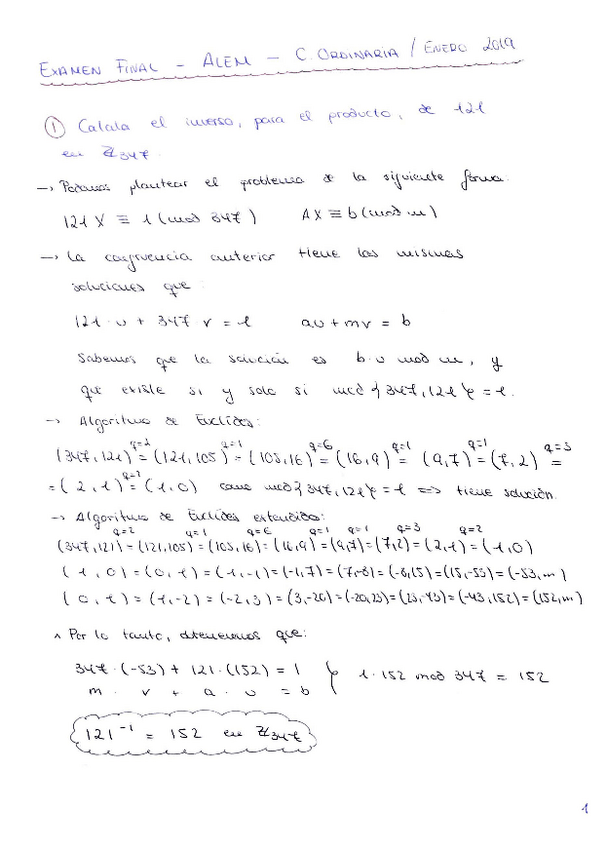 EXAMEN FINAL - ALEM - C. ORDINARIA / ENERO 2019
① Calcula el inverso, para el producto, de 121
en ℤ347.
→ Podemos plantear el problema de la siguiente forma:
121 X ≡ 1 (mod 347) AX ≡ b (mod m)
→ La congruencia anterior tiene las mismas
soluciones que:
121 · u + 347 · v = 1 au + mv = b
Sabemos que la solución es b · u mod m, y
que existe si y solo si mcd {347, 121} = 1.
→ Algoritmo de Euclides:
(347, 121) q=2 = (121, 105) q=1 = (105, 16) q=6 = (16, 9) q=1 = (9, 7) q=1 = (7, 2) q=3 =
= (2, 1) q=2 = (1, 0) como mcd {347, 121} = 1 => tiene solución.
→ Algoritmo de Euclides extendido:
q=2 q=1 q=6 q=1 q=1 q=3 q=2
(347, 121) = (121, 105) = (105, 16) = (16, 9) = (9, 7) = (7, 2) = (2, 1) = (1, 0)
(1, 0) = (0, 1) = (1, -1) = (-1, 7) = (7, -8) = (-8, 15) = (15, -53) = (-53, m)
(0, 1) = (1, -2) = (-2, 3) = (3, -20) = (-20, 23) = (23, -43) = (-43, 152) = (152, m)
Por lo tanto, obtenemos que:
347 · (-53) + 121 · (152) = 1 } 1 · 152 mod 347 = 152
m · v + a · u = b
121⁻¹ = 152 en ℤ347
1